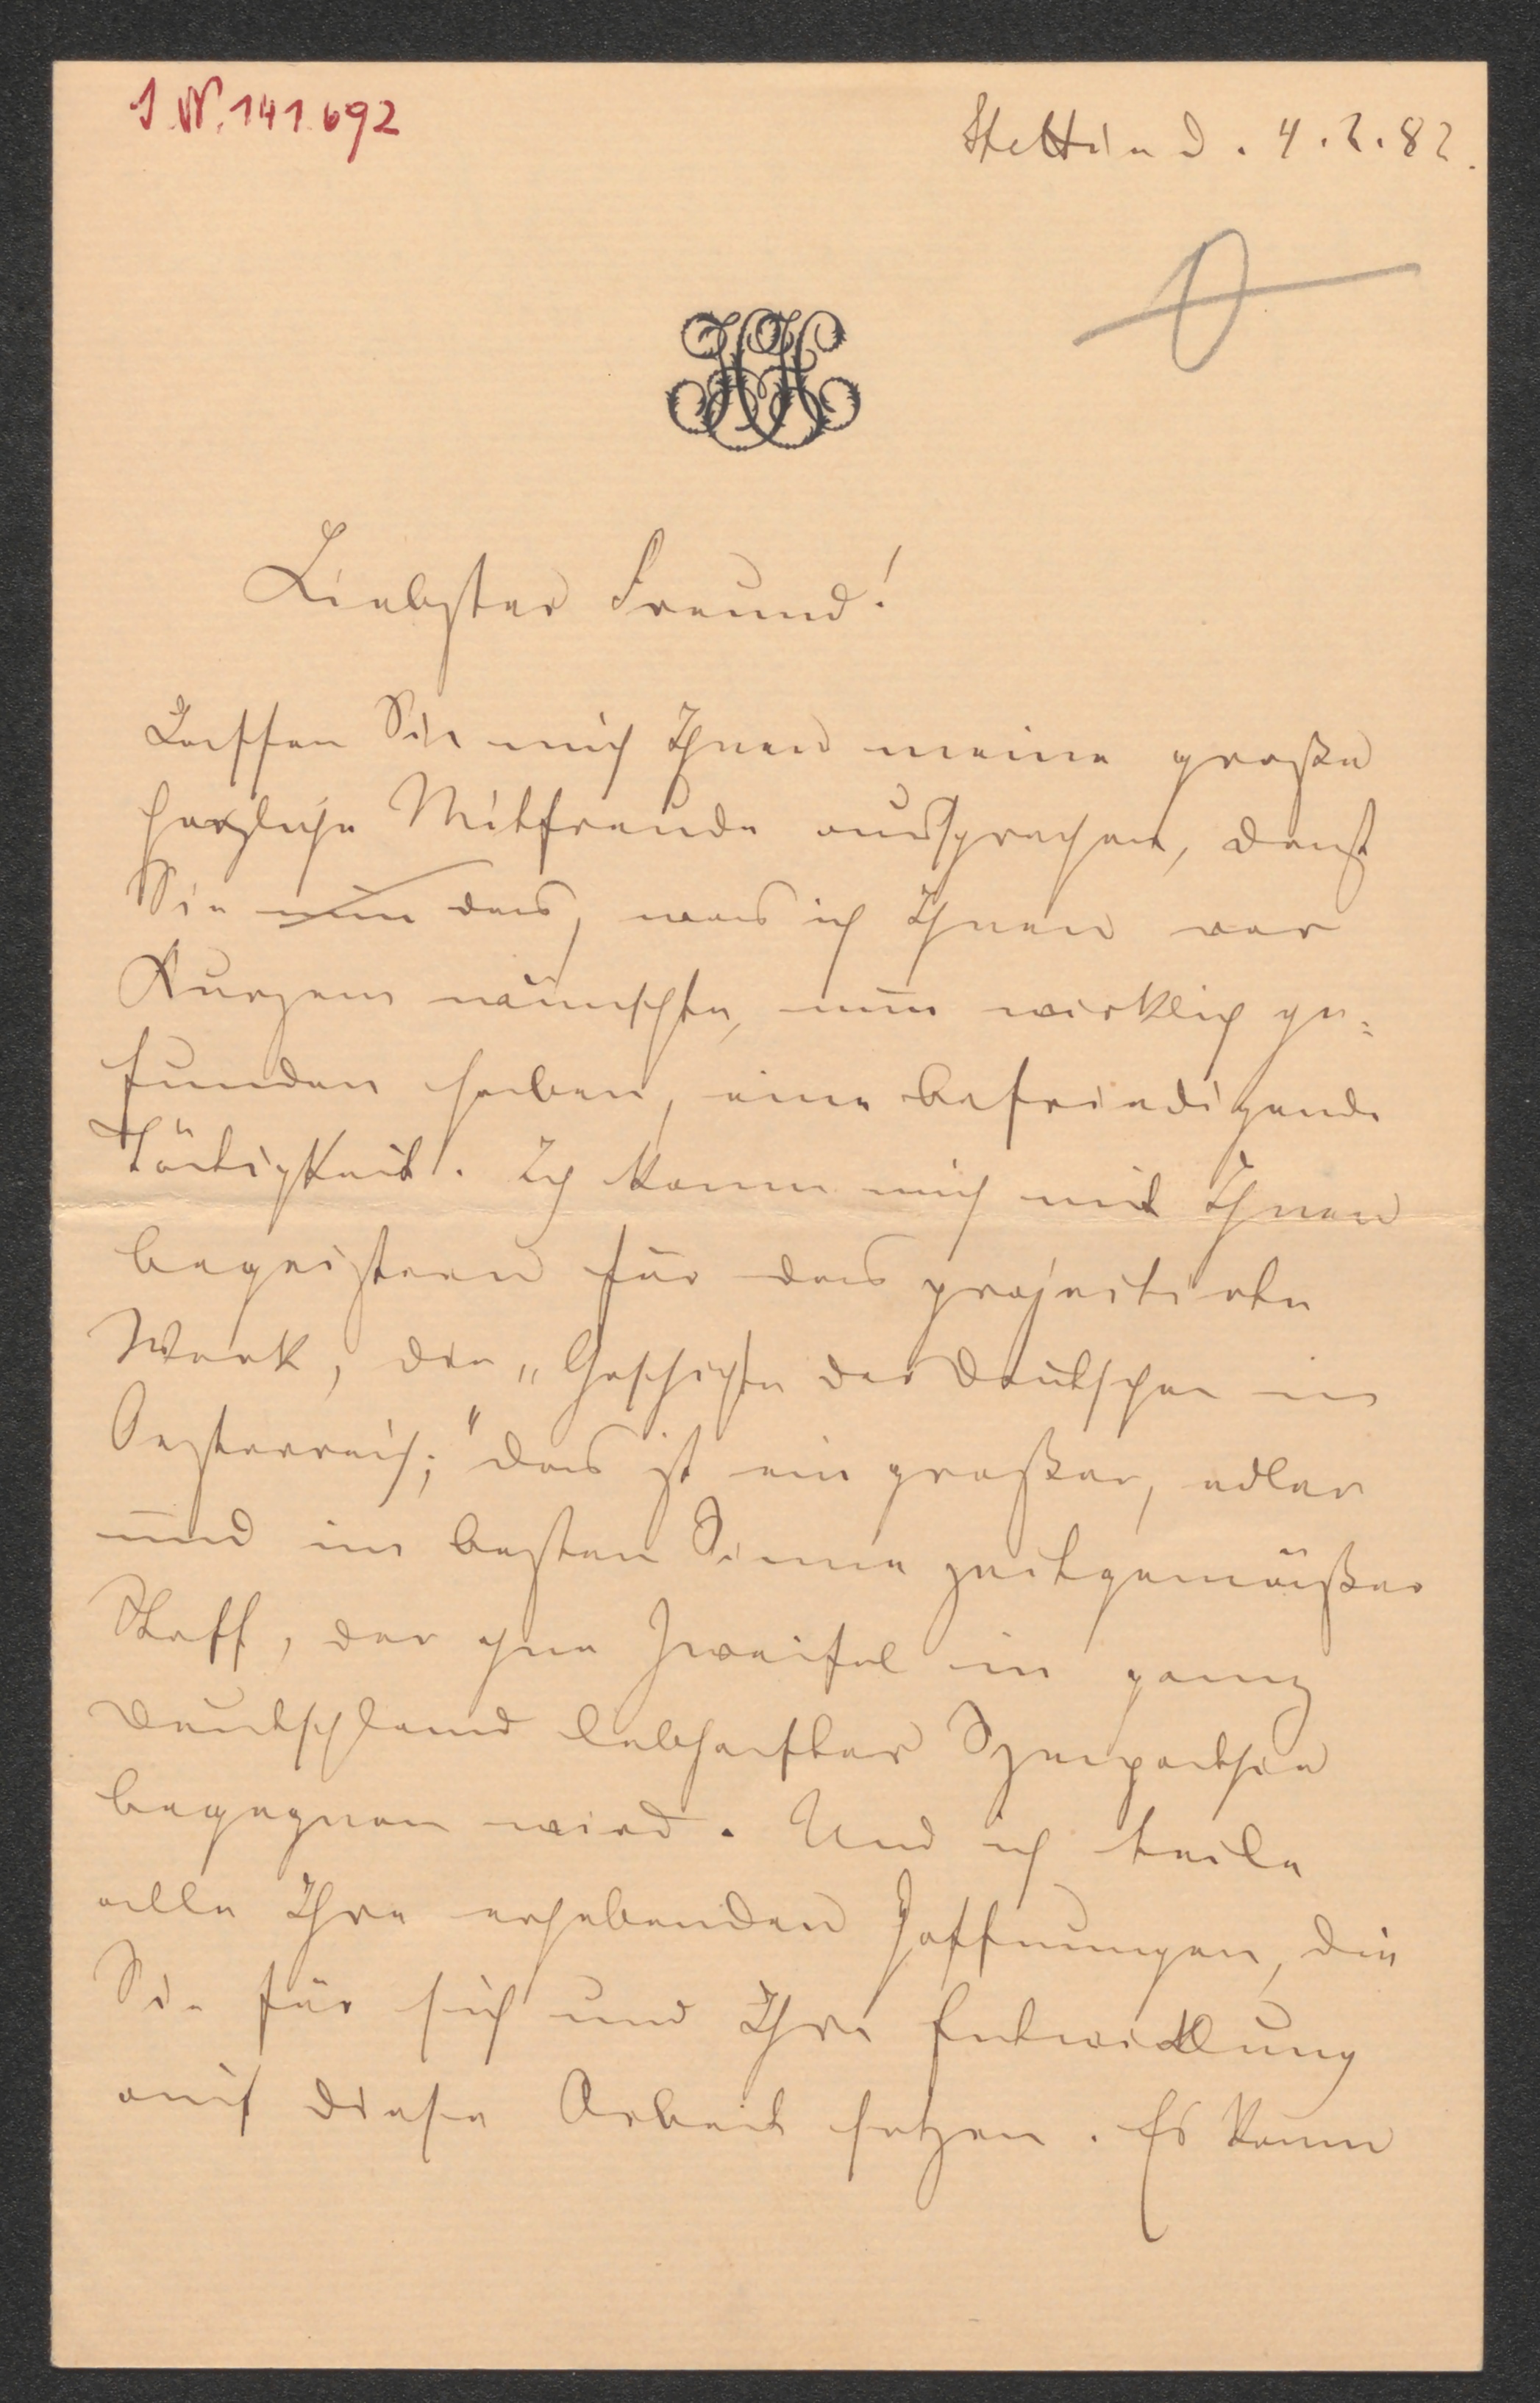 I.N. 141.692
Stettin d. 4.2.82.
HH
Liebster Freund!
Lassen Sie mich Ihnen meine große
herzliche Mitfreude aussprechen, daß
Sie nun das, was ich Ihnen vor
Kurzem wünschte, nun wirklich ge=
funden haben, eine befriedigende
Tätigkeit. Ich kann mich mit Ihnen
begeistern für das projectirte
Werk, die „Geschichte der Deutschen in
Oesterreich;" das ist ein großer, edler
und im besten Sinne zeitgemäßer
Stoff, der ohne Zweifel in ganz
Deutschland lebhafter Sympathie
begegnen wird. Und ich teile
alle Ihre erhebenden Hoffnungen, die
Sie für sich und Ihre Entwicklung
auf diese Arbeit setzen. Es kann